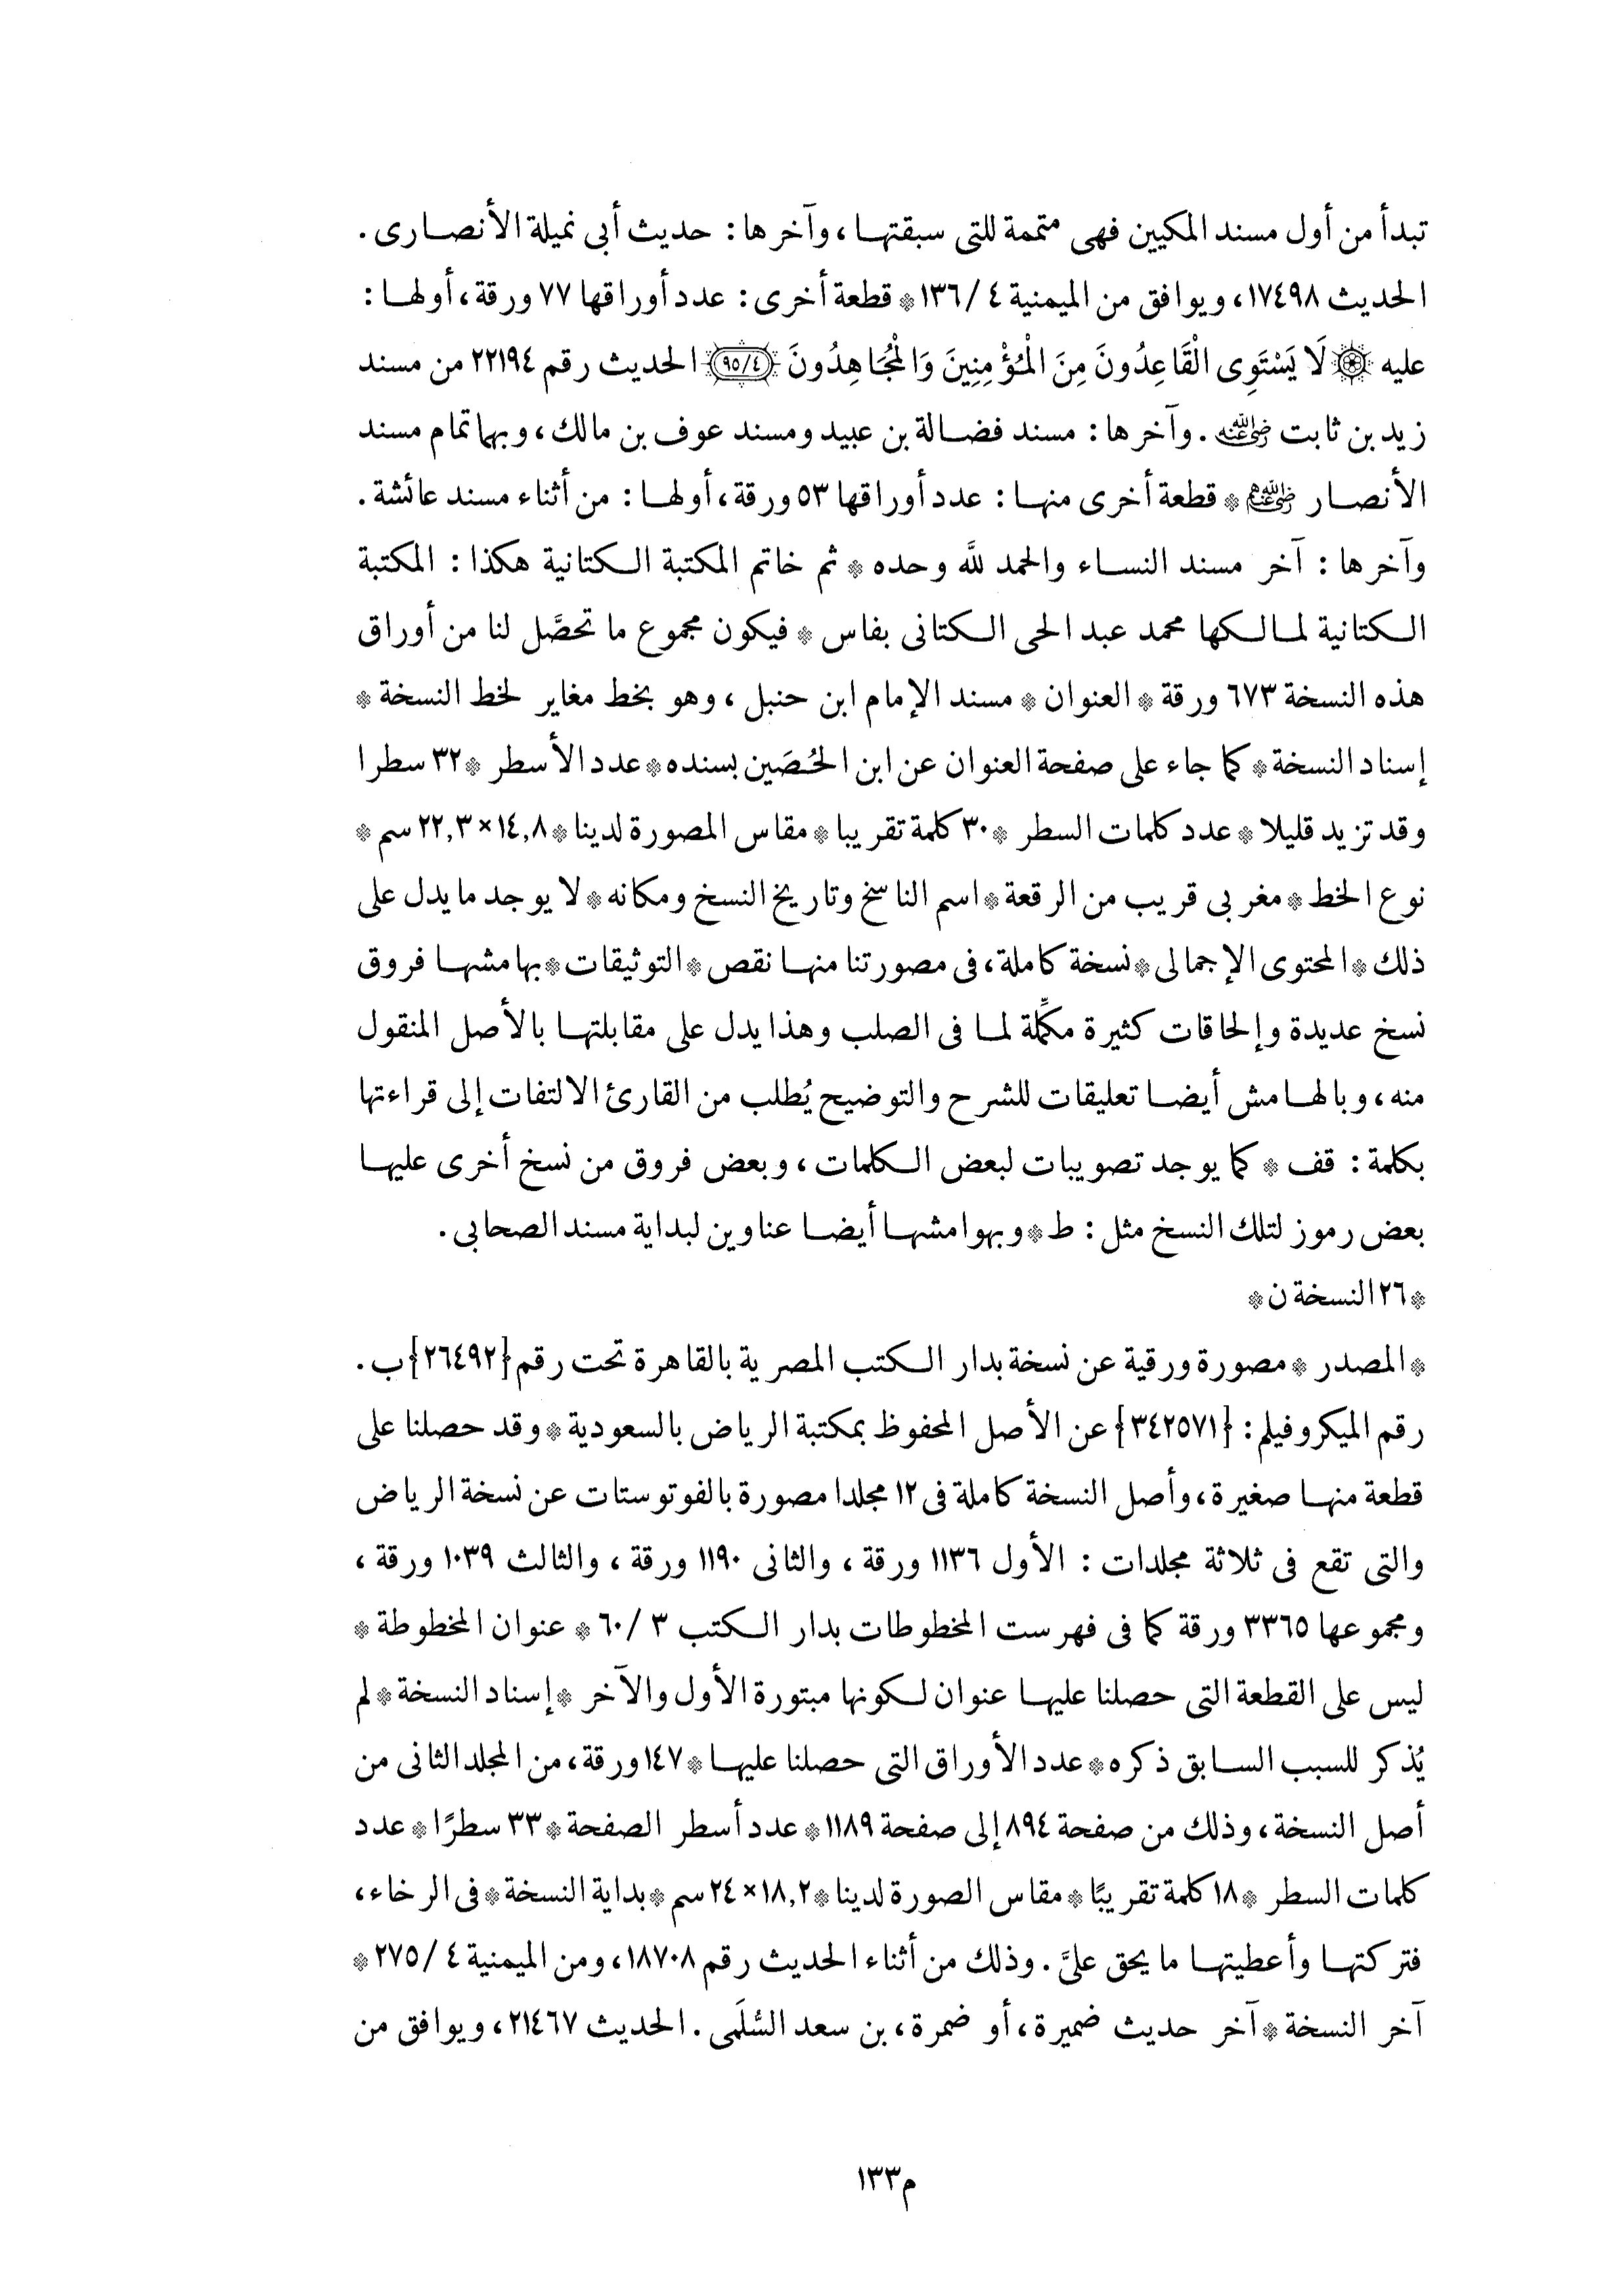 تبدأ من أول مسند المكيين فهى متممة للتى سبقتها، وآخرها: حديث أبى نميلة الأنصارى.
الحديث ١٧٤٩٨، ويوافق من الميمنية ٤ /١٣٦ * قطعة أخرى: عدد أوراقها ٧٧ ورقة، أولها:
عليه ﴿لَا يَسْتَوِى الْقَاعِدُونَ مِنَ الْمُؤْمِنِينَ وَالْمُجَاهِدُونَ﴾ (٤/ ٩٥) الحديث رقم ٢٢١٩٤ من مسند
زيد بن ثابت رضي الله عنه. وآخرها: مسند فضالة بن عبيد ومسند عوف بن مالك، وبهما تمام مسند
الأنصار رضي الله عنهم * قطعة أخرى منها: عدد أوراقها ٥٣ ورقة، أولها: من أثناء مسند عائشة.
وآخرها: آخر مسند النساء والحمد للَّه وحده * ثم خاتم المكتبة الكتانية هكذا: المكتبة
الكتانية لمالكها محمد عبد الحى الكتانى بفاس * فيكون مجموع ما تحصَّل لنا من أوراق
هذه النسخة ٦٧٣ ورقة * العنوان * مسند الإمام ابن حنبل، وهو بخط مغاير لخط النسخة *
إسناد النسخة * كما جاء على صفحة العنوان عن ابن الحُصَين بسنده * عدد الأسطر * ٣٢ سطرا
وقد تزيد قليلا * عدد كلمات السطر * ٣٠ كلمة تقريبا * مقاس المصورة لدينا * ١٤,٨×٢٢,٣ سم *
نوع الخط * مغربى قريب من الرقعة * اسم الناسخ وتاريخ النسخ ومكانه * لا يوجد ما يدل على
ذلك * المحتوى الإجمالى * نسخة كاملة، فى مصورتنا منها نقص * التوثيقات * بهامشها فروق
نسخ عديدة وإلحاقات كثيرة مكمِّلة لما فى الصلب وهذا يدل على مقابلتها بالأصل المنقول
منه، وبالهامش أيضا تعليقات للشرح والتوضيح يُطلب من القارئ الالتفات إلى قراءتها
بكلمة: قف * كما يوجد تصويبات لبعض الكلمات، وبعض فروق من نسخ أخرى عليها
بعض رموز لتلك النسخ مثل: ط * وبهوامشها أيضا عناوين لبداية مسند الصحابى.
* ٢٦ النسخة ن *
* المصدر * مصورة ورقية عن نسخة بدار الكتب المصرية بالقاهرة تحت رقم {٢٦٤٩٢} ب.
رقم الميكروفيلم: {٣٤٢٥٧١} عن الأصل المحفوظ بمكتبة الرياض بالسعودية * وقد حصلنا على
قطعة منها صغيرة، وأصل النسخة كاملة فى ١٢ مجلدا مصورة بالفوتوستات عن نسخة الرياض
والتى تقع فى ثلاثة مجلدات: الأول ١١٣٦ ورقة، والثانى ١١٩٠ ورقة، والثالث ١٠٣٩ ورقة،
ومجموعها ٣٣٦٥ ورقة كما فى فهرست المخطوطات بدار الكتب ٣ /٦٠ * عنوان المخطوطة *
ليس على القطعة التى حصلنا عليها عنوان لكونها مبتورة الأول والآخر * إسناد النسخة * لم
يُذكر للسبب السابق ذكره * عدد الأوراق التى حصلنا عليها * ١٤٧ ورقة، من المجلد الثانى من
أصل النسخة، وذلك من صفحة ٨٩٤ إلى صفحة ١١٨٩ * عدد أسطر الصفحة * ٣٣ سطرًا * عدد
كلمات السطر * ١٨ كلمة تقريبًا * مقاس الصورة لدينا * ١٨,٢×٢٤ سم * بداية النسخة * فى الرخاء،
فتركتها وأعطيتها ما يحق علىَّ. وذلك من أثناء الحديث رقم ١٨٧٠٨، ومن الميمنية ٤ /٢٧٥ *
آخر النسخة * آخر حديث ضميرة، أو ضمرة، بن سعد السُّلَمى. الحديث ٢١٤٦٧، ويوافق من
م١٣٣